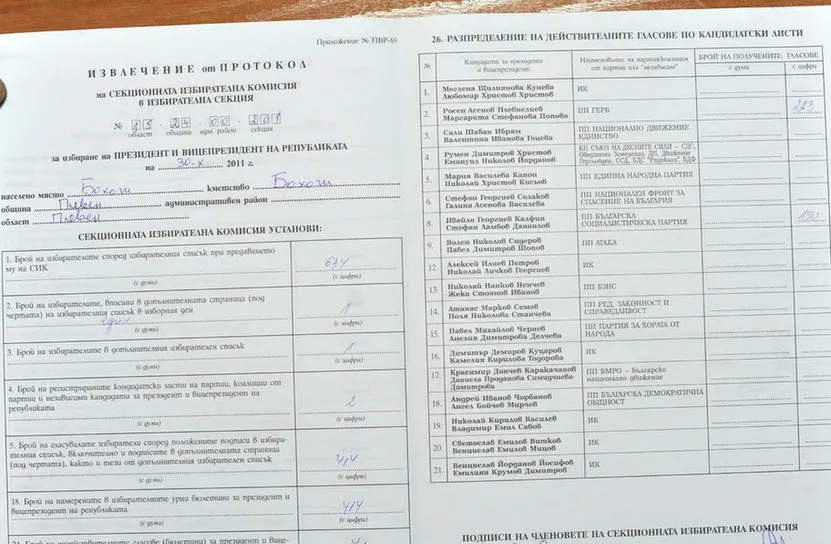 Приложение № ПВР-69
ИЗВЛЕЧЕНИЕ от ПРОТОКОЛ
на СЕКЦИОННАТА ИЗБИРАТЕЛНА КОМИСИЯ
В ИЗБИРАТЕЛНА СЕКЦИЯ
№ 15 24 00 201
област община адм. район секция
за избиране на ПРЕЗИДЕНТ И ВИЦЕПРЕЗИДЕНТ НА РЕПУБЛИКАТА
на 30.X. 2011 г.
населено място Бохот кметство Бохот
община Плевен административен район
област Плевен
СЕКЦИОННАТА ИЗБИРАТЕЛНА КОМИСИЯ УСТАНОВИ:
1. Брой на избирателите според избирателния списък при предаването
му на СИК 674
(с думи) (с цифри)
2. Брой на избирателите, вписани в допълнителната страница (под
чертата) на избирателния списък в изборния ден 1
един
(с думи) (с цифри)
3. Брой на избирателите в допълнителния избирателен списък
(с думи) (с цифри)
4. Брой на регистрираните кандидатски листи на партии, коалиции от
партии и независими кандидати за президент и вицепрезидент на
републиката 2
(с думи) (с цифри)
5. Брой на гласувалите избиратели според положените подписи в избира-
телния списък, включително и подписите в допълнителната страница
(под чертата), както и тези от допълнителния избирателен списък 414
(с думи) (с цифри)
18. Брой на намерените в избирателните урни бюлетини за президент и
вицепрезидент на републиката 414
(с думи) (с цифри)
гласове (бюлетини) за президент и вице-
26. РАЗПРЕДЕЛЕНИЕ НА ДЕЙСТВИТЕЛНИТЕ ГЛАСОВЕ ПО КАНДИДАТСКИ ЛИСТИ
№ Кандидати за президент и вицепрезидент Наименование на партия/коалиция от партии или "независим" БРОЙ НА ПОЛУЧЕНИТЕ ГЛАСОВЕ
с думи с цифри
1. Меглена Щилиянова Кунева ИК
Любомир Христов Христов
2. Росен Асенов Плевнелиев ПП ГЕРБ 223
Маргарита Стефанова Попова
3. Сали Шабан Ибрям ПП НАЦИОНАЛНО ДВИЖЕНИЕ
Валентина Иванова Гоцева ЕДИНСТВО
4. Румен Димитров Христов КП СЪЮЗ НА ДЕСНИТЕ СИЛИ – СДС,
Емануил Николов Йорданов
5. Мария Василева Капон ПП ЕДИННА НАРОДНА ПАРТИЯ
Николай Христов Кисьов
6. Стефан Георгиев Солаков ПП НАЦИОНАЛЕН ФРОНТ ЗА
Галина Асенова Василева СПАСЕНИЕ НА БЪЛГАРИЯ
8. Ивайло Георгиев Калфин ПП БЪЛГАРСКА
Стефан Ламбов Данаилов СОЦИАЛИСТИЧЕСКА ПАРТИЯ 150
9. Волен Николов Сидеров ПП АТАКА
Павел Димитров Шопов
12. Алексей Илиев Петров ИК
Николай Личков Георгиев
13. Николай Нанков Ненчев ПП БЗНС
Жеко Стоянов Иванов
14. Атанас Марков Семов ПП РЕД, ЗАКОННОСТ И
Поля Николова Станчева СПРАВЕДЛИВОСТ
15. Павел Михайлов Чернев ПП ПАРТИЯ ЗА ХОРАТА ОТ
Анелия Димитрова Делчева НАРОДА
16. Димитър Демиров Куцаров ИК
Камелия Кирилова Тодорова
17. Красимир Дончев Каракачанов ПП ВМРО – Българско
Даниела Проданова Симидчиева- национално движение
Димитрова
18. Андрей Иванов Чорбанов ПП БЪЛГАРСКА ДЕМОКРАТИЧНА
Ангел Бойчев Мирчев ОБЩНОСТ
19. Николай Кирилов Василев ИК
Владимир Емил Савов
20. Светослав Емилов Витков ИК
Венцислав Емилов Мицов
21. Венцислав Йорданов Йосифов ИК
Емилиян Крумов Димитров
ПОДПИСИ НА ЧЛЕНОВЕТЕ НА СЕКЦИОННАТА ИЗБИРАТЕЛНА КОМИСИЯ